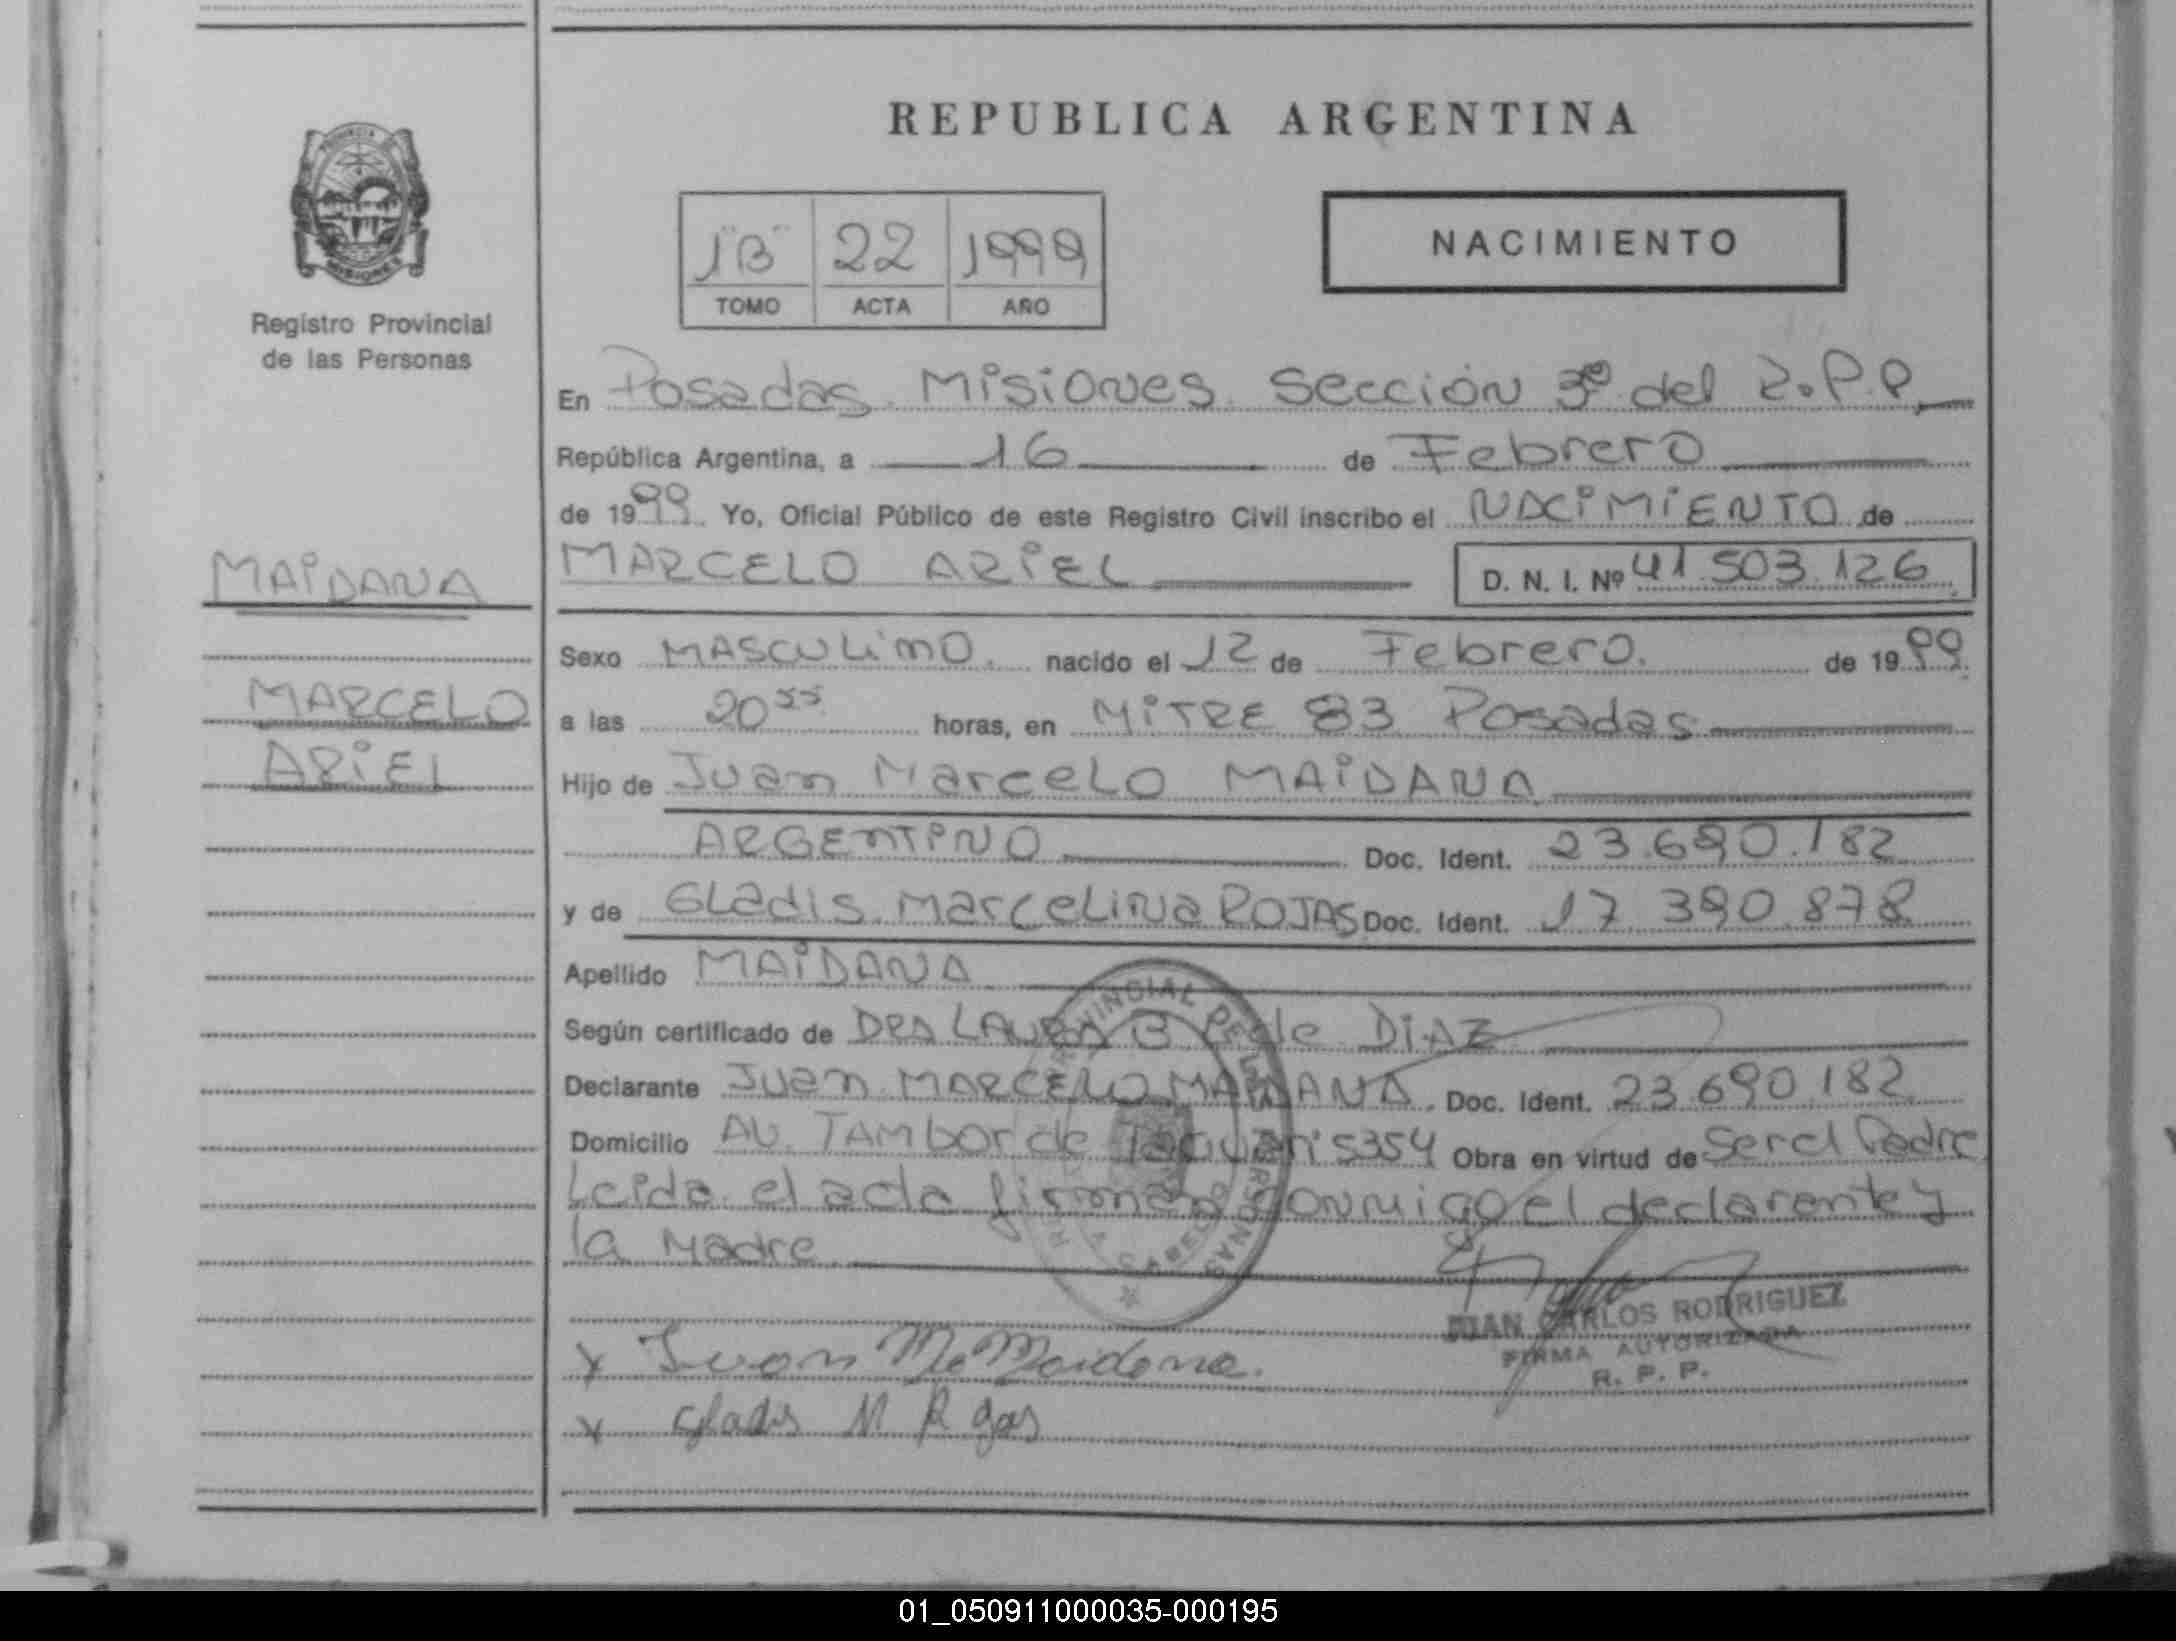 REPUBLICA ARGENTINA
PROVINCIA DE
MISIONES
Registro Provincial
de las Personas
1"B" 22 1999
TOMO ACTA AÑO
NACIMIENTO
En Posadas Misiones Sección 3º del R.P.P.
República Argentina, a 16 de Febrero
de 1999 Yo, Oficial Público de este Registro Civil inscribo el NACIMIENTO de
MAIDANA
MARCELO ARIEL D. N. I. Nº 41.503.126
Sexo MASCULINO. nacido el 12 de Febrero. de 1999.
MARCELO
a las 20 55 horas, en MITRE 83 Posadas
ARIEL
Hijo de Juan Marcelo MAIDANA
ARGENTINO Doc. Ident. 23.690.182
y de GLadis Marcelina ROJAS Doc. Ident. 17.390.878
Apellido MAIDANA
Según certificado de DRA LAURA B de DIAZ
Declarante Juan MARCELO MAIDANA. Doc. Ident. 23.690.182
Domicilio AV. TAMbor de Tacuari 5354 Obra en virtud de Ser el Padre
Leida el acta firman conmigo el declarante y
la Madre
JUAN CARLOS RODRIGUEZ
FIRMA AUTORIZADA
R. P. P.
x Juan M. Maidana.
x Gladis M Rojas
01_050911000035-000195